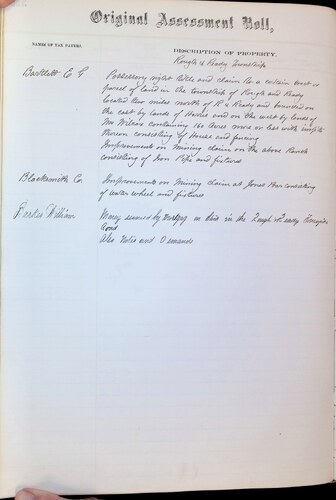 Original Assessment Roll,
NAMES OF TAX PAYERS.
DESCRIPTION OF PROPERTY.
Rough & Ready Township
Bartlett E G
Possessory right title and claim to a certain tract or
parcel of land in the township of Rough and Ready
located two miles north of R & Ready and bounded on
the east by lands of and on the west by lands of
Mr Wilson containing 160 acres more or less with
thereon consisting of House and fencing
Improvements on mining claim on the above Ranch
consisting of Iron Pipe and fixtures
Blacksmith Co
Improvements on Mining claim at Jones Bar consisting
of water wheel and fixtures
William
Money secured by Mortgage on in the Rough & Ready
Land
Also Notes and Demands